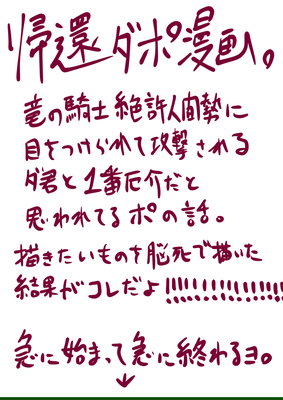 帰還ダポ漫画。
竜の騎士絶許人間勢に
目をつけられて攻撃される
ダ君と1番厄介だと
思われてるポの話。
描きたいものを脳死で描いた
結果がコレだよ!!!!!!!!!!!!!!!!
急に始まって急に終わるヨ。
↓